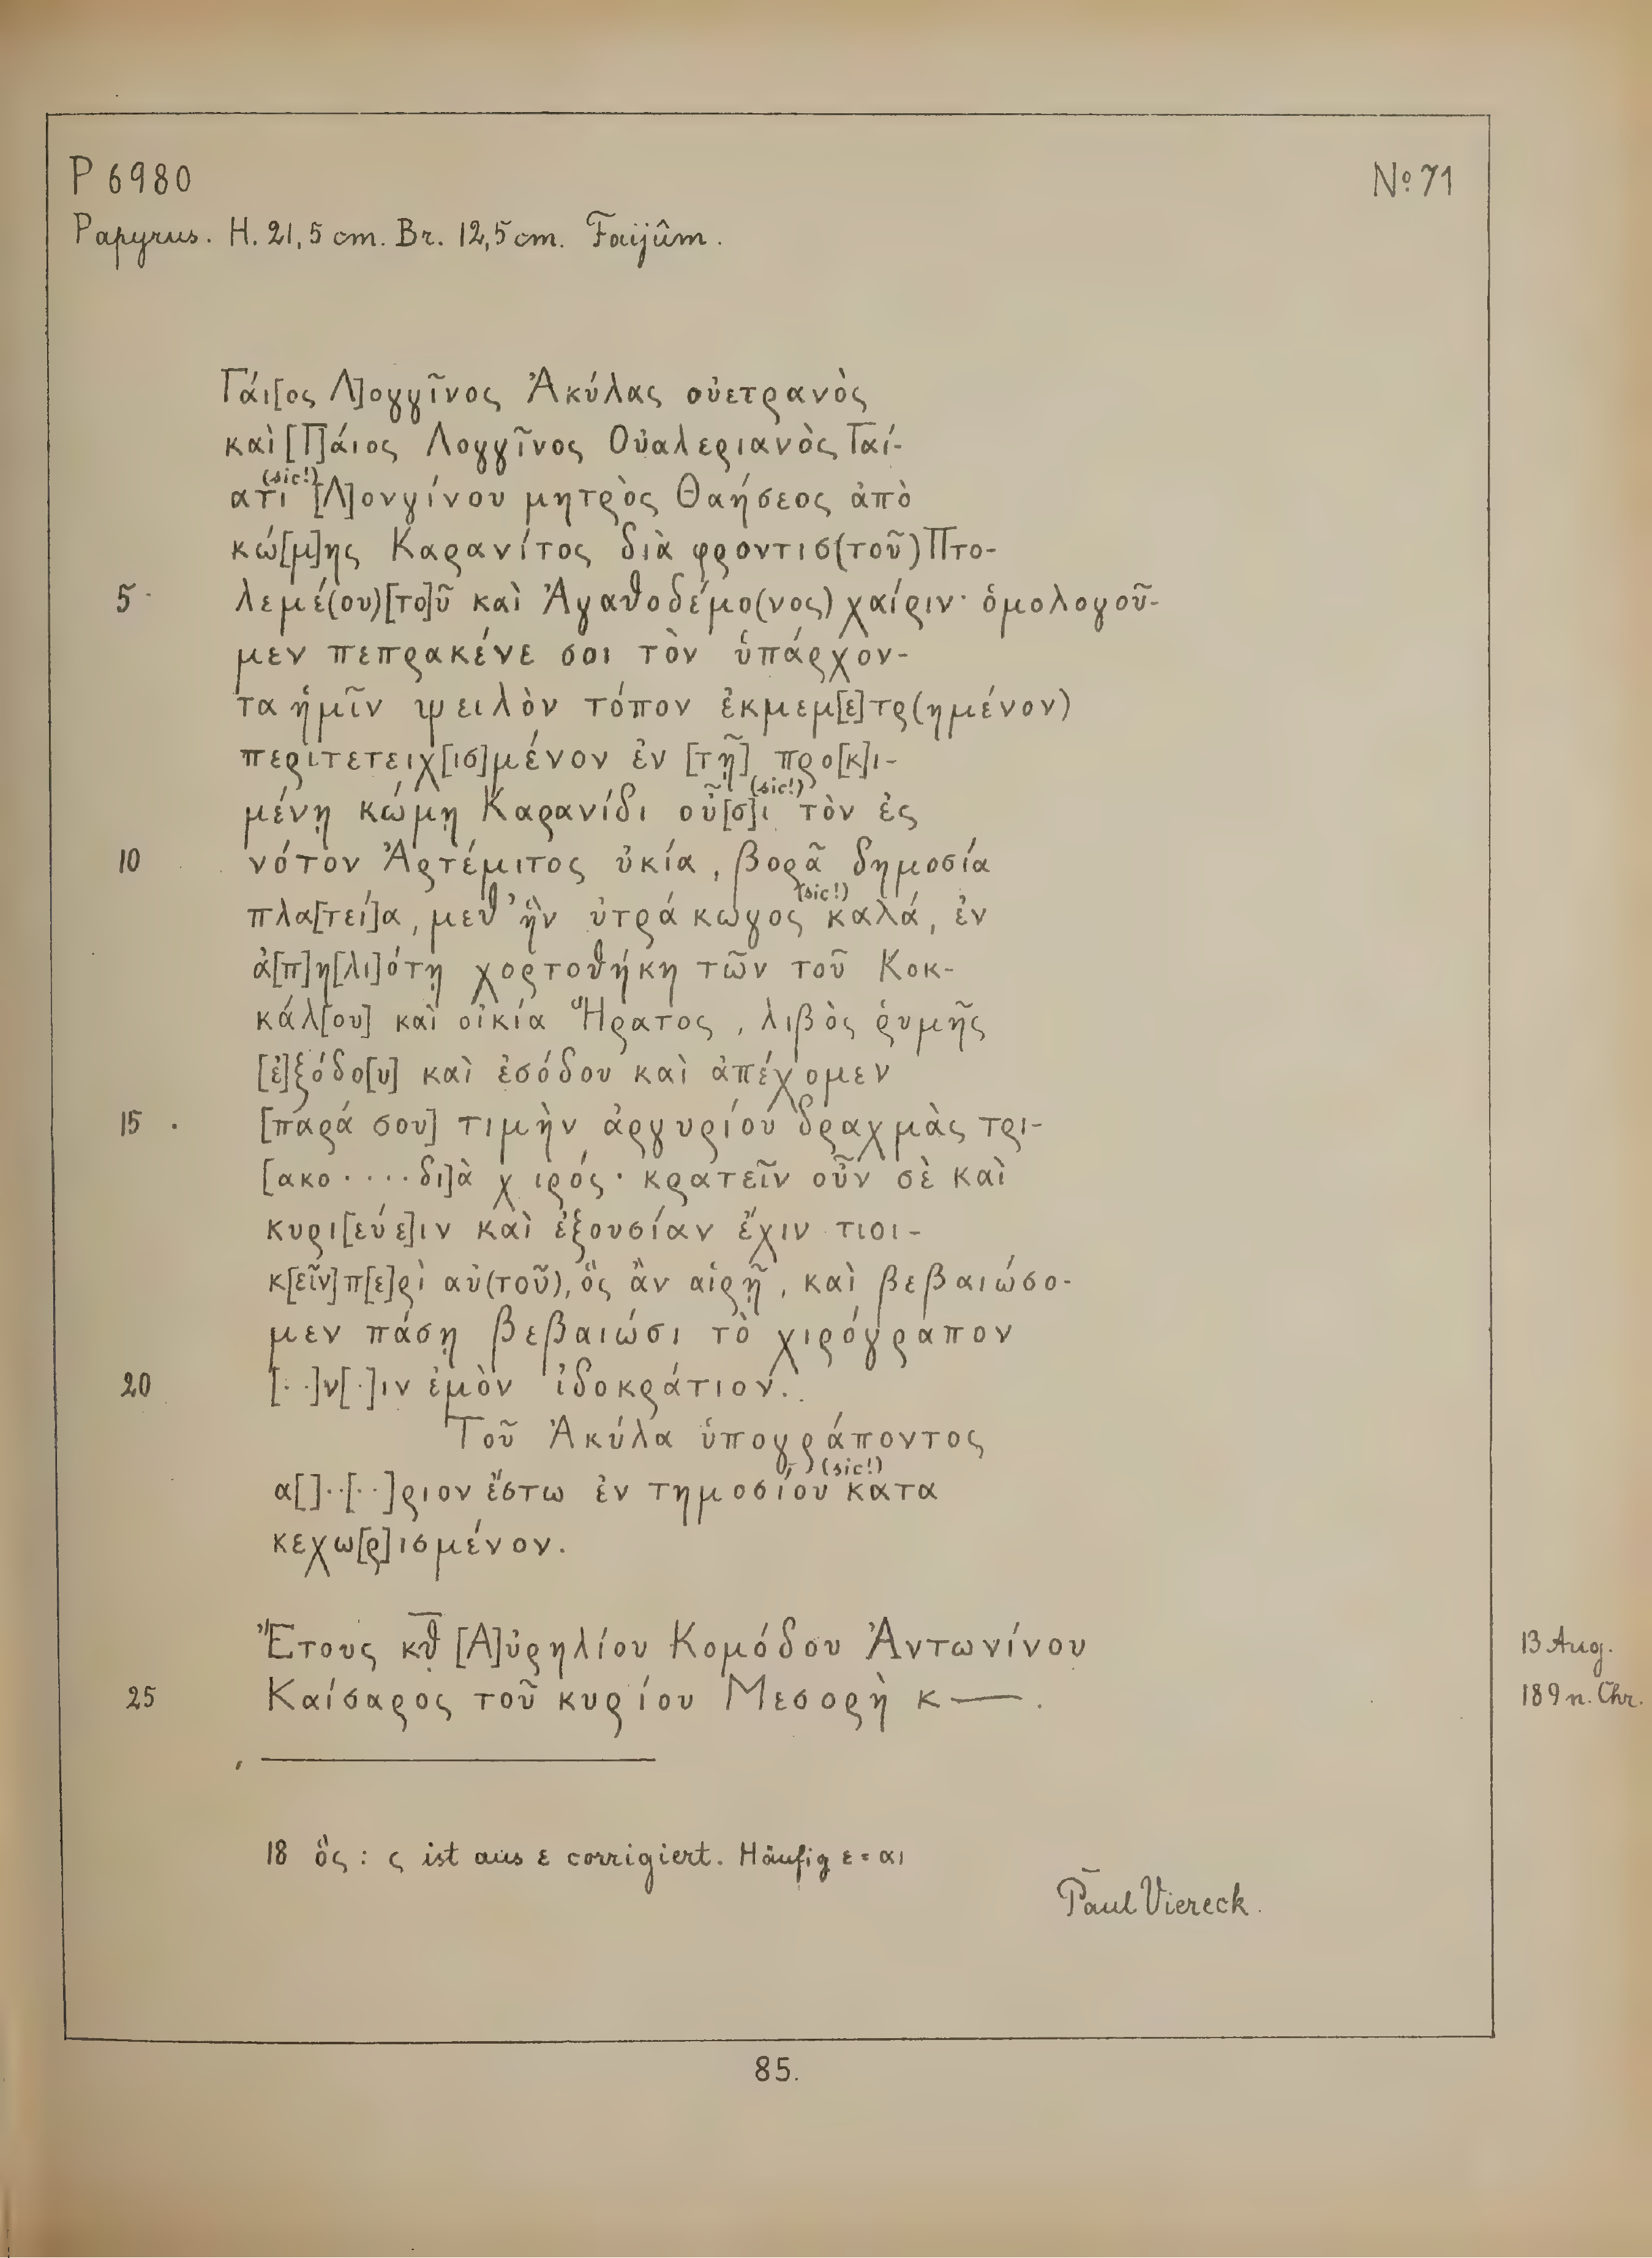 P 6980
No 71
Papyrus. H. 21,5 cm. Br. 12,5 cm. Faijûm.
Γάι[ος Λ]ογγῖνος Ἀκύλας οὐετρανὸς
καὶ [Γ]άιος Λογγῖνος Οὐαλεριανὸς Γαί-
(sic!)
ατι [Λ]ονγίνου μητρὸς Θαήσεος ἀπὸ
κώ[μ]ης Καρανίτος διὰ φροντισ(τοῦ) Πτο-
5 λεμέ(ου) [το]ῦ καὶ Ἀγαθοδέμο(νος) χαίριν· ὁμολογοῦ-
μεν πεπρακένε σοι τὸν ὑπάρχον-
τα ἡμῖν ψειλὸν τόπον ἐκμεμ[ε]τρ(ημένον)
περιτετειχ[ισ]μένον ἐν [τῇ] προ[κ]ι-
(sic!)
μένῃ κώμῃ Καρανίδι οὗ[σ]ι τὸν ἐς
10 νότον Ἀρτέμιτος ὑκία, βορᾶ δημοσία
(sic!)
πλα[τεί]α, μεθ' ἣν ὑτρά κωγος καλά, ἐν
ἀ[π]η[λι]ότῃ χορτοθήκη τῶν τοῦ Κοκ-
κάλ[ου] καὶ οἰκία Ἥρατος, λιβὸς ῥυμῆς
[ἐ]ξόδο[υ] καὶ ἐσόδου καὶ ἀπέχομεν
15 [παρά σου] τιμὴν ἀργυρίου δραχμὰς τρι-
[ακο····δι]ὰ χιρός· κρατεῖν οὖν σὲ καὶ
κυρι[εύε]ιν καὶ ἐξουσίαν ἔχιν τιοι-
κ[εῖν] π[ε]ρὶ αὐ(τοῦ), ὃς ἂν αἱρῇ, καὶ βεβαιώσο-
μεν πάσῃ βεβαιώσι τὸ χιρόγραπον
20 [··]ν[·]ιν ἐμὸν ἰδοκράτιον.
Τοῦ Ἀκύλα ὑπογράποντος
(sic!)
α[]··[··]ριον ἔστω ἐν τημοσίου κατα
κεχω[ρ]ισμένον.
Ἔτους κθ [Α]ὐρηλίου Κομόδου Ἀντωνίνου 13 Aug.
25 Καίσαρος τοῦ κυρίου Μεσορὴ κ—. 189 n. Chr.
18 ὃς : ς ist aus ε corrigiert. Häufig ε = αι
Paul Viereck.
85.